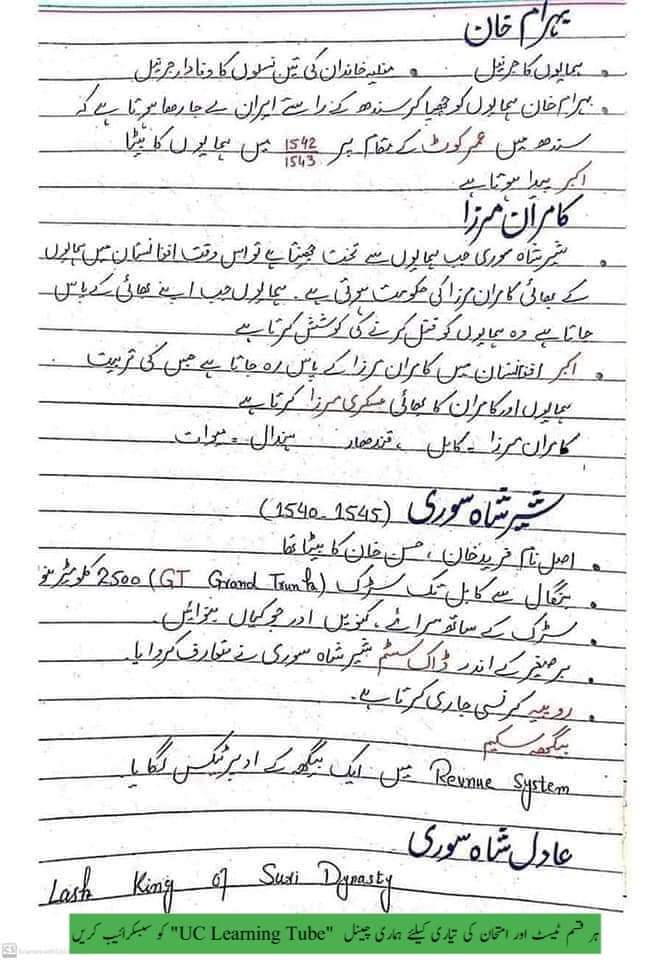 بہرام خان
• ہمایوں کا جرنیل • مغلیہ خاندان کی تین نسلوں کا وفادار جرنیل
• بہرام خان ہمایوں کو چھپا کر سندھ کے راستے ایران لے جا رھا ہوتا ہے کہ
سندھ میں عمر کوٹ کے مقام پر 1542/1543 میں ہمایوں کا بیٹا
اکبر پیدا ہوتا ہے
کامران مرزا
• شیر شاہ سوری جب ہمایوں سے تخت چھینتا ہے تو اس وقت افغانستان میں ہمایوں
کے بھائی کامران مرزا کی حکومت ہوتی ہے۔ ہمایوں جب اپنے بھائی کے پاس
جاتا ہے وہ ہمایوں کو قتل کرنے کی کوشش کرتا ہے
• اکبر افغانستان میں کامران مرزا کے پاس رہ جاتا ہے جس کی تربیت
ہمایوں اور کامران کا بھائی عسکری مرزا کرتا ہے
کامران مرزا - کابل ، قندھار ہندال - میوات
شیر شاہ سوری (1540-1545)
• اصل نام فرید خان ، حسن خان کا بیٹا تھا
• بنگال سے کابل تک سڑک (GT Grand Trunk) 2500 کلومیٹر بنوائی
• سڑک کے ساتھ سرائے ، کنویں اور چوکیاں بنوائیں۔
• برصغیر کے اندر ڈاک سسٹم شیر شاہ سوری نے متعارف کروایا۔
• روپیہ کرنسی جاری کرتا ہے۔
بیگھہ سکیم
Revnue System میں ایک بیگھہ کے اوپر ٹیکس لگایا
عادل شاہ سوری
Last King of Suri Dynasty
ہر قسم ٹیسٹ اور امتحان کی تیاری کیلئے ہماری چینل "UC Learning Tube" کو سبسکرائیب کریں
CS